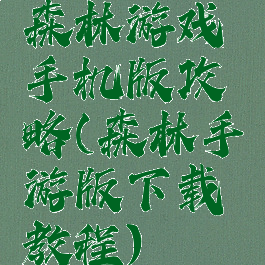 森林游戏
手机版攻
略(森林手
游版下载
教程)